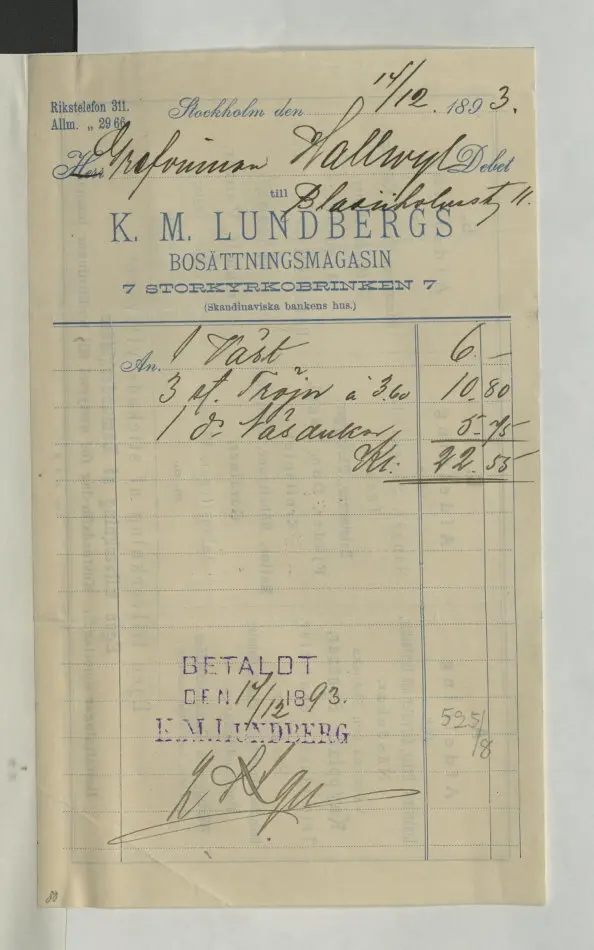 Rikstelefon 311.
Allm. „ 29 66.
Stockholm den 14/12 1893.
Herr Grefvinnan Hallwyl Debet
till Blasieholmstg 11.
K. M. LUNDBERGS
BOSÄTTNINGSMAGASIN
7 STORKYRKOBRINKEN 7
(Skandinaviska bankens hus.)
An. 1 Väst 6 –
3 st. Tröjor à 3.60 10.80
1 d: Näsdukar 5.75
Kr. 22.55
BETALDT
DEN 14/12 1893.
K.M.LUNDBERG
525/8
80